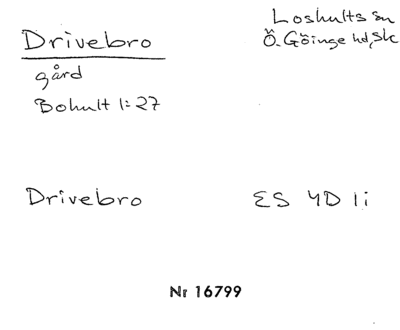 Drivebro
Loshults sn
Ö. Göinge hd, Sk
gård
Bohult 1:27
Drivebro
ES 4D 1i
Nr 16799